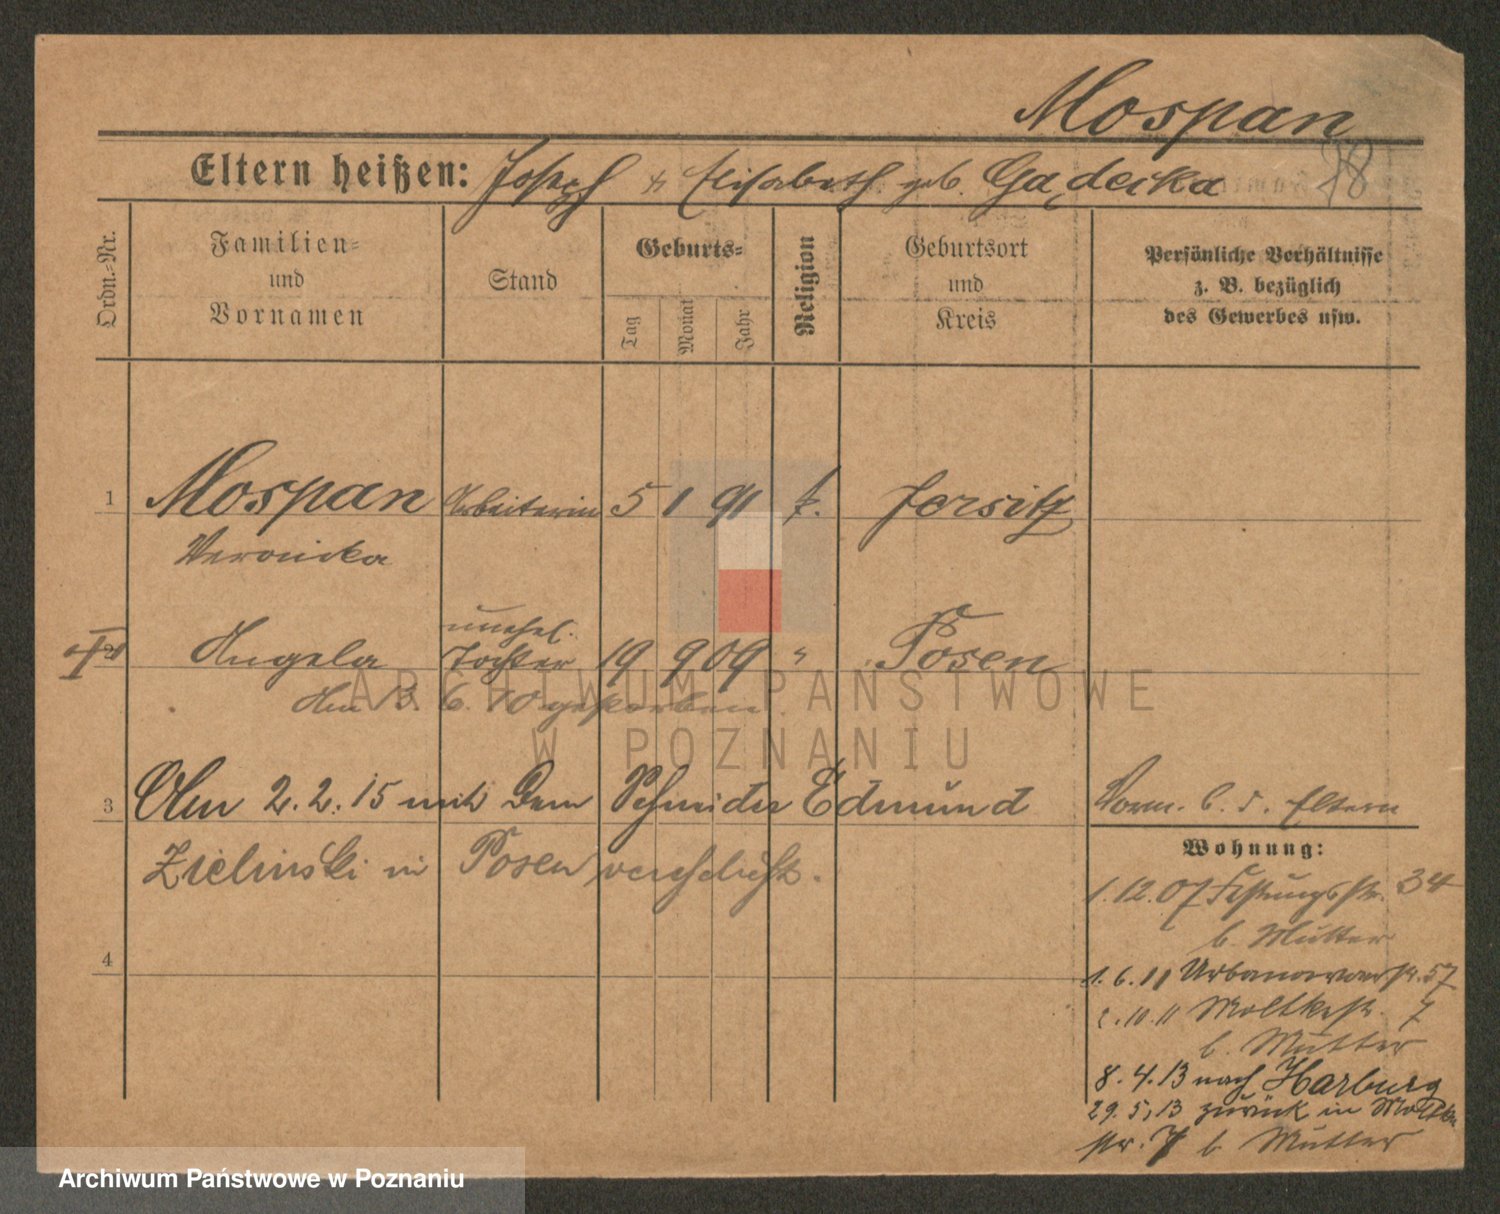 Mospan
78
Eltern heißen: Joseph & Elisabeth geb. Gądecka
Ordn.-Nr.
Familien-
und
Vornamen
Stand
Geburts-
Tag
Monat
Jahr
Religion
Geburtsort
und
Kreis
Persönliche Verhältnisse
z. B. bezüglich
des Gewerbes usw.
1 Mospan Arbeiterin 5 1 91 k. Jersitz
Veronika
unehel.
2 Angela Tochter 19 9 09 " Posen
Am 13. 6. 10 gestorben.
3 Am 2. 2. 15 mit dem Schneider Edmund
Zielinski in Posen verehelicht.
4
Vorm. b. d. Eltern
Wohnung:
1. 12. 07 Festungsstr. 34
b. Mutter
1. 6. 11 Urbanowoerstr. 57
2. 10. 11 Moltkestr. 7
b. Mutter
8. 4. 13 nach Harburg
29. 5. 13 zurück in Moltke
str. 7 b Mutter
ARCHIWUM PAŃSTWOWE
W POZNANIU
Archiwum Państwowe w Poznaniu